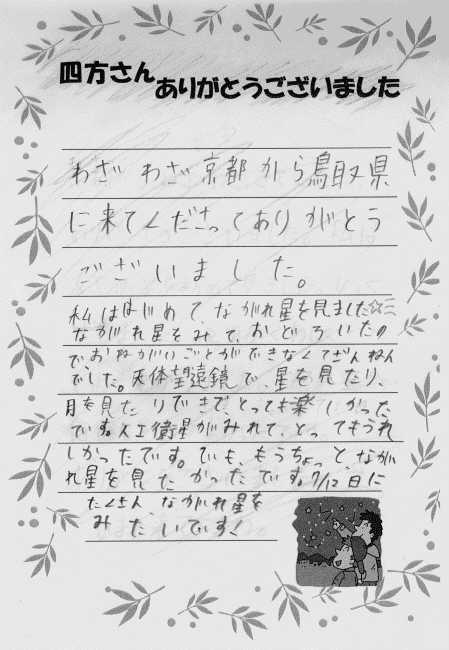 四方さん
ありがとうございました
わざわざ京都から鳥取県
に来てくださってありがとう
ございました。
私ははじめて、ながれ星を見ました☆ミ
ながれ星をみて、おどろいたの
で、おねがいごとができなくてざんねん
でした。天体望遠鏡で、星を見たり、
月を見たりできて、とっても楽しかった
です。人工衛星がみれて、とってもうれ
しかったです。でも、もうちょっと、ながれ
れ星を見たかったです。7/12日に
たくさん、ながれ星を
みたいです!